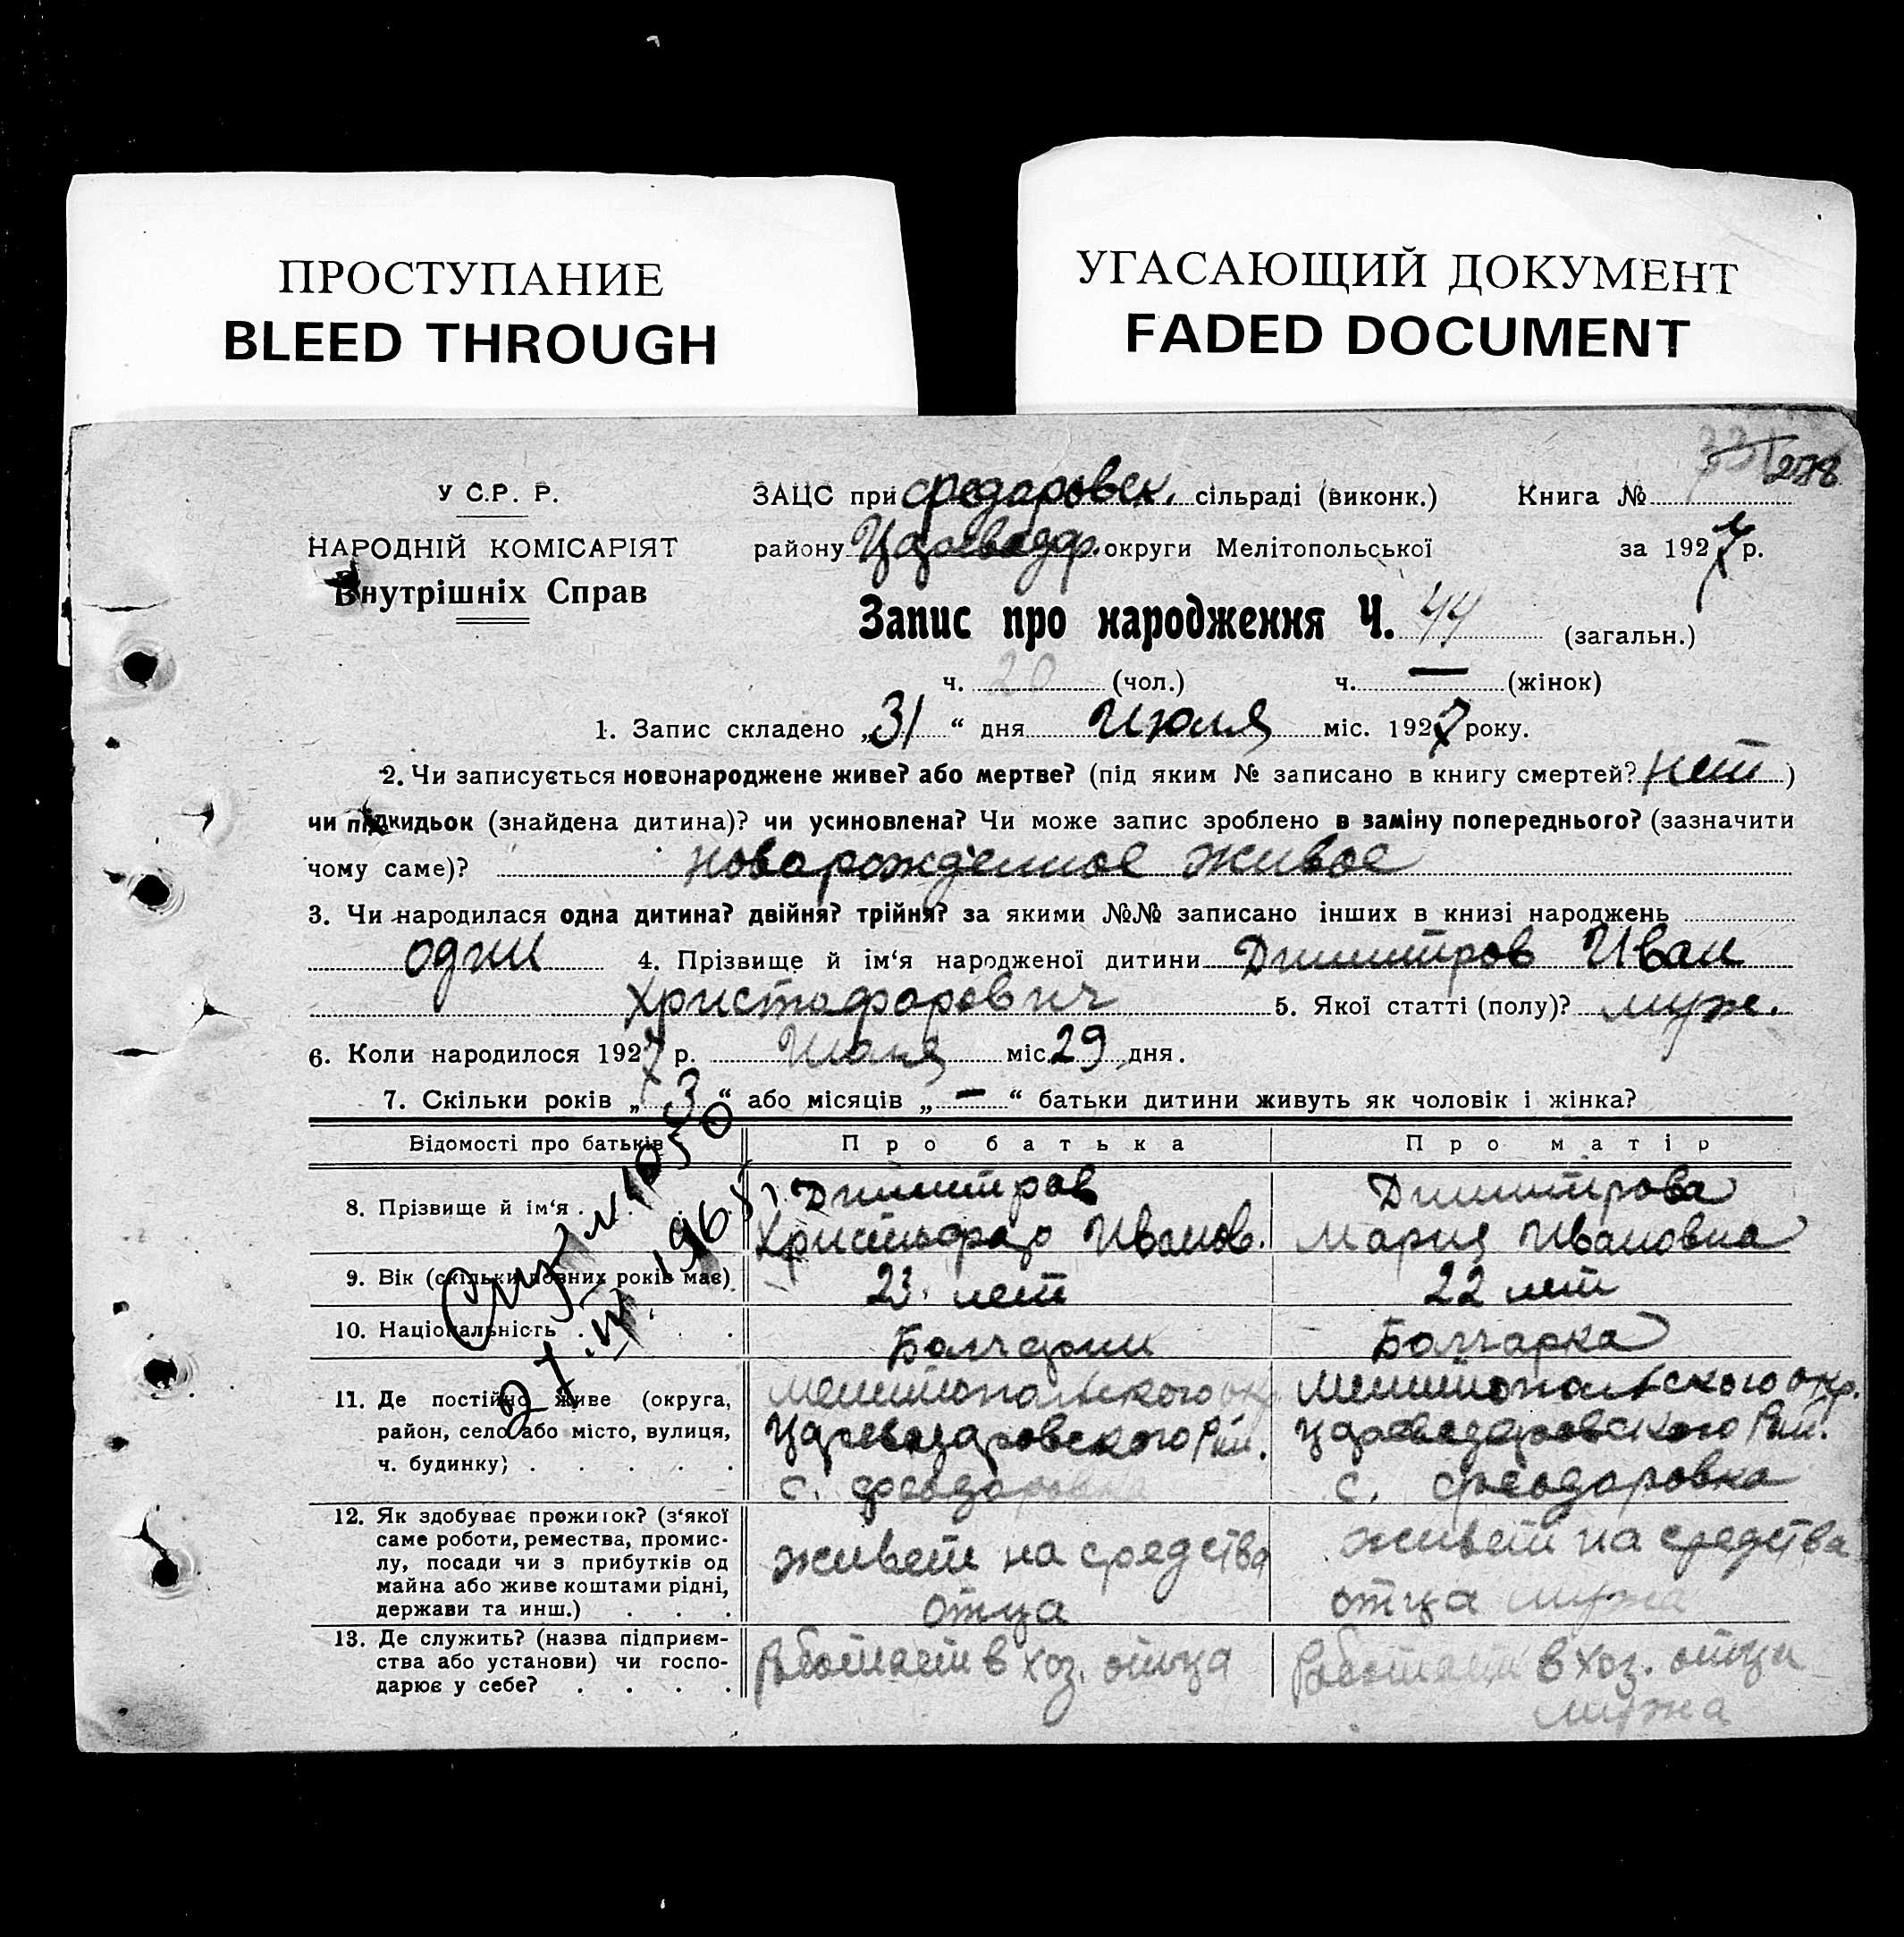 ПРОСТУПАНИЕ
BLEED THROUGH
УГАСАЮЩИЙ ДОКУМЕНТ
FADED DOCUMENT
278
У С.Р. Р.
НАРОДНІЙ КОМІСАРІЯТ
Внутрішніх Справ
ЗАЦС при Феодоровск. сільраді (виконк.) Книга №
району Цареводар. округи Мелітопольської за 1927 р.
Запис про народження Ч. 44 (загальн.)
ч. 20 (чол.) ч. — (жінок)
1. Запис складено „31“ дня Июля міс. 1927 року.
2. Чи записується новонароджене живе? або мертве? (під яким № записано в книгу смертей? нет)
чи підкидьок (знайдена дитина)? чи усиновлена? Чи може запис зроблено в заміну попереднього? (зазначити
чому саме)? новорожденное живое
3. Чи народилася одна дитина? двійня? трійня? за якими №№ записано інших в книзі народжень
один 4. Прізвище й ім‘я народженої дитини Димитров Иван
Христофорович 5. Якої статті (полу)? муж.
6. Коли народилося 1927 р. міс. 29 дня.
7. Скільки років „3“ або місяців „—“ батьки дитини живуть як чоловік і жінка?
Відомості про батьків Про батька Про матір
8. Прізвище й ім‘я . Димитров Димитрова
Христофор Иванов. Мария Ивановна
9. Вік (скільки повних років має) 23. лет 22 лет
10. Національність . Болгарин Болгарка
11. Де постійно живе (округа, Мелитопольского окр. Мелитопольского окр.
район, село або місто, вулиця, Царевадаровского Рай. Царевадаровского Рай.
ч. будинку) . . . . . с. Феодоровка с. Феодоровка
12. Як здобуває прожиток? (з‘якої
саме роботи, ремества, промис-
лу, посади чи з прибутків од
майна або живе коштами рідні,
держави та инш.) . . .
живет на средства живет на средства
отца отца мужа
13. Де служить? (назва підприєм-
ства або установи) чи госпо-
дарює у себе? . . . .
Работает в хоз. отца Работает в хоз. отца
мужа